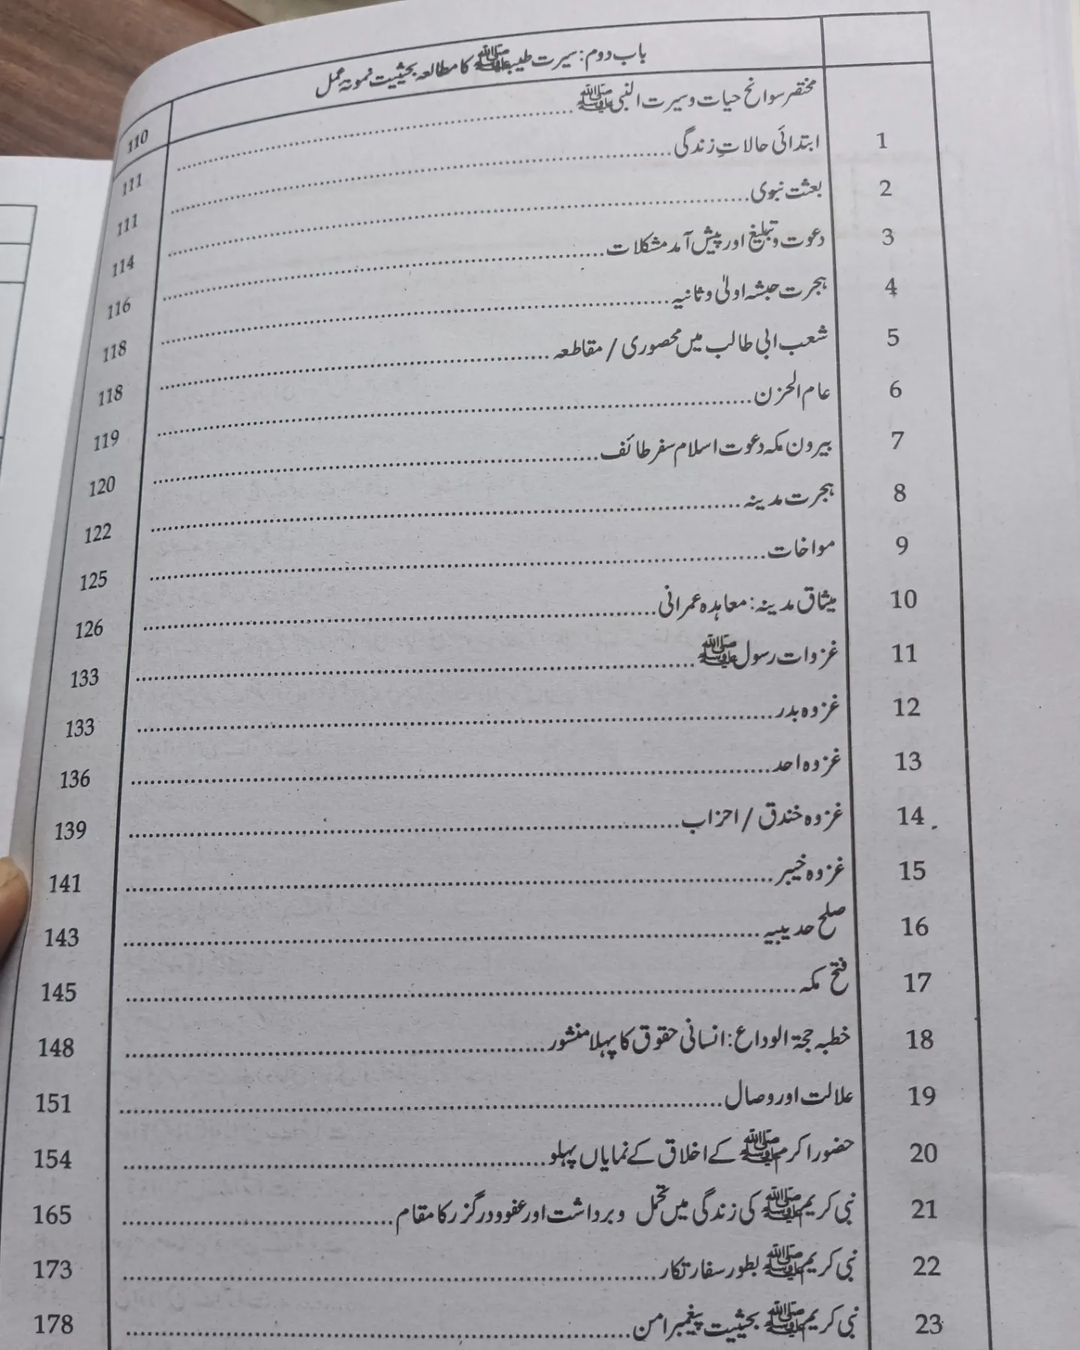 باب دوم: سیرت طیبہ ﷺ کا مطالعہ بحیثیت نمونۂ عمل 110
مختصر سوانح حیات و سیرت النبی ﷺ 111
1 ابتدائی حالاتِ زندگی 111
2 بعثت نبوی 114
3 دعوت و تبلیغ اور پیش آمد مشکلات 116
4 ہجرت حبشہ اولیٰ و ثانیہ 118
5 شعب ابی طالب میں محصوری / مقاطعہ 118
6 عام الحزن 119
7 بیرون مکہ دعوت اسلام سفر طائف 120
8 ہجرت مدینہ 122
9 مواخات 125
10 میثاق مدینہ: معاہدہ عمرانی 126
11 غزوات رسول ﷺ 133
12 غزوہ بدر 133
13 غزوہ احد 136
14 غزوہ خندق / احزاب 139
15 غزوہ خیبر 141
16 صلح حدیبیہ 143
17 فتح مکہ 145
18 خطبہ حجۃ الوداع: انسانی حقوق کا پہلا منشور 148
19 علالت اور وصال 151
20 حضور اکرم ﷺ کے اخلاق کے نمایاں پہلو 154
21 نبی کریم ﷺ کی زندگی میں تحمل و برداشت اور عفو و درگزر کا مقام 165
22 نبی کریم ﷺ بطور سفارتکار 173
23 نبی کریم ﷺ بحیثیت پیغمبر امن 178